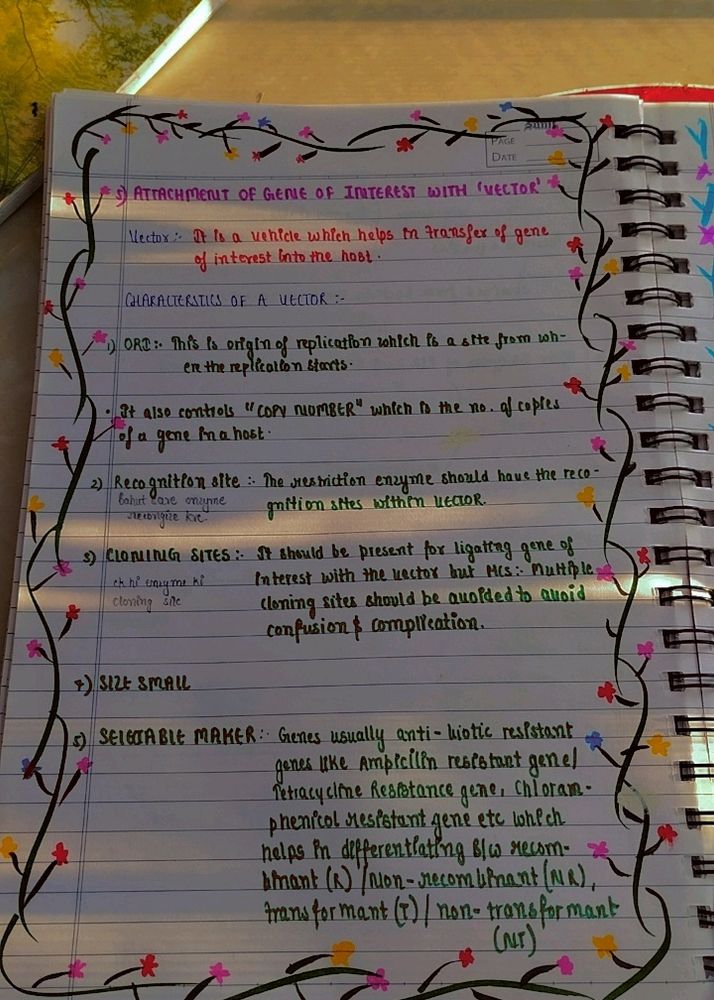 Sunil
PAGE
DATE
5) ATTACHMENT OF GENE OF INTEREST WITH 'VECTOR'
Vector:- It is a vehicle which helps in transfer of gene
of interest into the host.
CHARACTERSTICS OF A VECTOR:-
1) ORI:- This is origin of replication which is a site from wh-
en the replication starts.
• It also controls "COPY NUMBER" which is the no. of copies
of a gene in a host.
2) Recognition site :- The restriction enzyme should have the reco-
bahut sare enzyme gnition sites within VECTOR.
recognize kre.
3) CLONING SITES:- It should be present for ligating gene of
ek hi enzyme ki interest with the vector but MCS:- Multiple
cloning site cloning sites should be avoided to avoid
confusion & complication.
4) SIZE SMALL
5) SELECTABLE MAKER:- Genes usually anti-biotic resistant
genes like Ampicilin resistant gene/
Tetracycline Resistance gene, Chloram-
phenicol resistant gene etc which
helps in differentiating B/w recom-
binant (R) / Non-recombinant (NR),
transformant (T) / non-transformant
(NT)